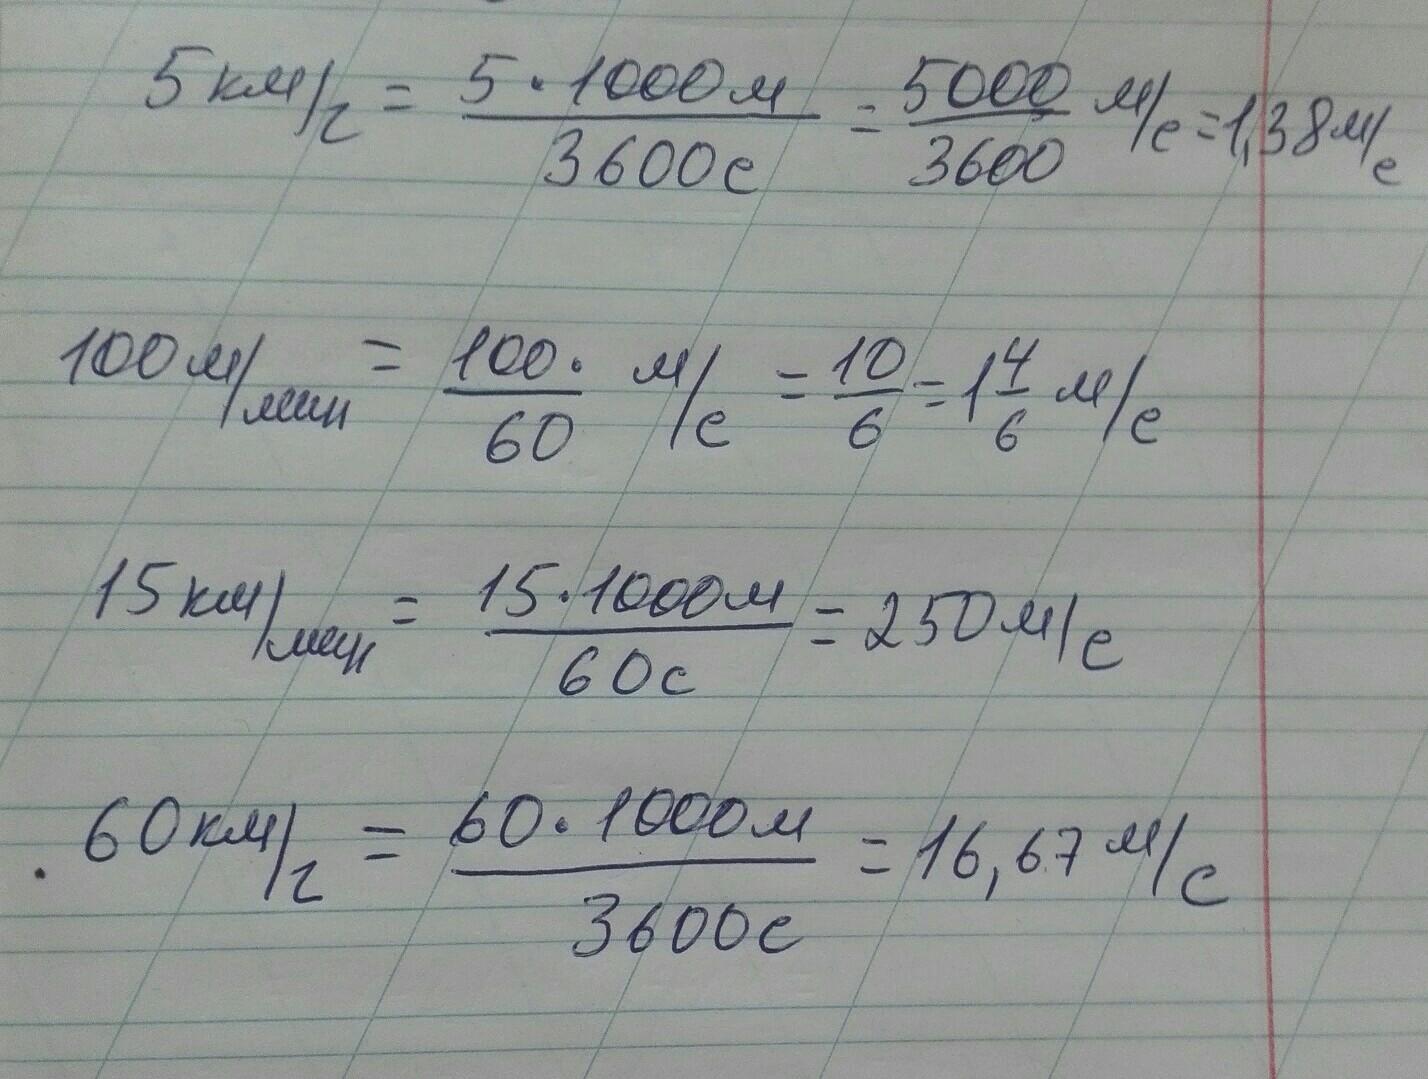 5 км/ч = 5 · 1000 м / 3600 с = 5000/3600 м/с = 1,38 м/с
100 м/мин = 100 · / 60 м/с = 10/6 = 1 4/6 м/с
15 км/мин = 15 · 1000 м / 60 с = 250 м/с
60 км/ч = 60 · 1000 м / 3600 с = 16,67 м/с